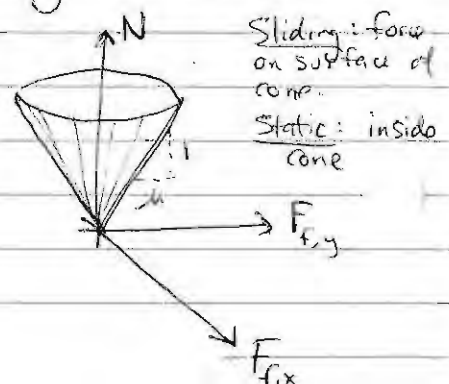 N
Sliding: force
on surface of
cone.
Static: inside
cone
1
μ
F_f,y
F_f,x